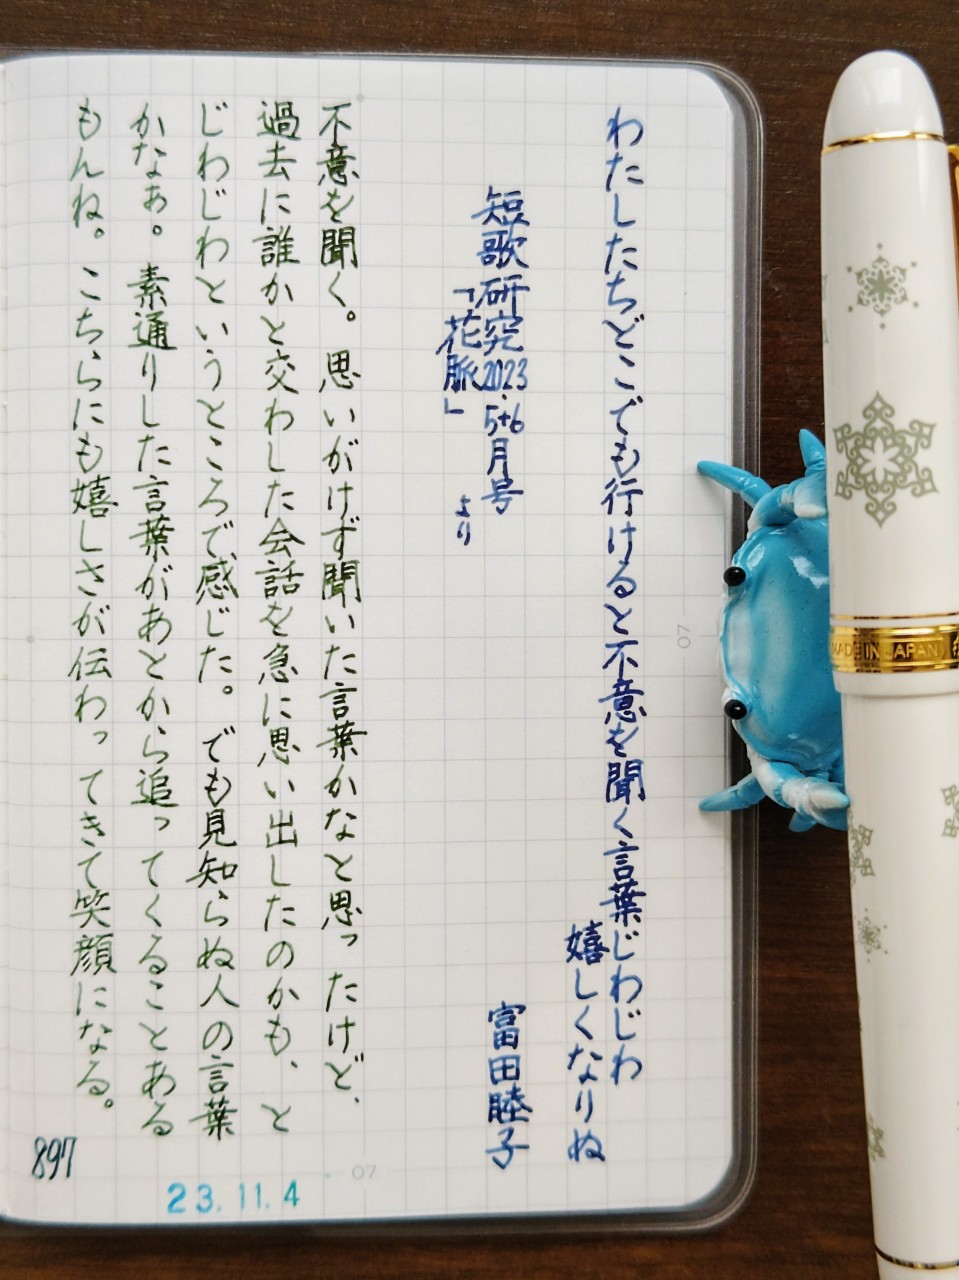 わたしたちどこでも行けると不意を聞く言葉じわじわ
嬉しくなりぬ
富田睦子
短歌研究2023.5+6月号
「花脈」
より
不意を聞く。思いがけず聞いた言葉かなと思ったけど、
過去に誰かと交わした会話を急に思い出したのかも、と
じわじわというところで感じた。でも見知らぬ人の言葉
かなぁ。素通りした言葉があとから追ってくることある
もんね。こちらにも嬉しさが伝わってきて笑顔になる。
897
23.11.4
07
07
MADE IN JAPAN